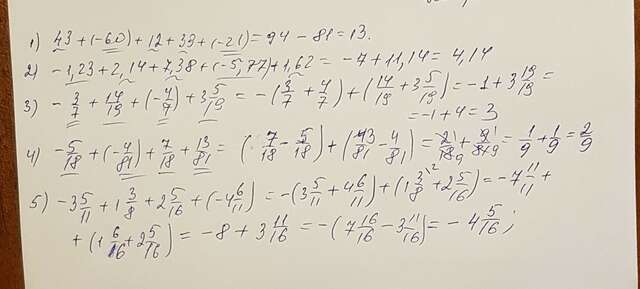 1) 43 + (-60) + 12 + 39 + (-21) = 94 - 81 = 13.
2) -1,23 + 2,14 + 7,38 + (-5,77) + 1,62 = -7 + 11,14 = 4,14
3) -3/7 + 14/19 + (-4/7) + 3 5/19 = -(3/7 + 4/7) + (14/19 + 3 5/19) = -1 + 3 19/19 =
= -1 + 4 = 3
4) -5/18 + (-4/81) + 7/18 + 13/81 = (7/18 - 5/18) + (13/81 - 4/81) = 2/18 + 9/81 = 1/9 + 1/9 = 2/9
5) -3 5/11 + 1 3/8 + 2 5/16 + (-4 6/11) = -(3 5/11 + 4 6/11) + (1 3/8 + 2 5/16) = -7 11/11 +
+ (1 6/16 + 2 5/16) = -8 + 3 11/16 = -(7 16/16 - 3 11/16) = -4 5/16;